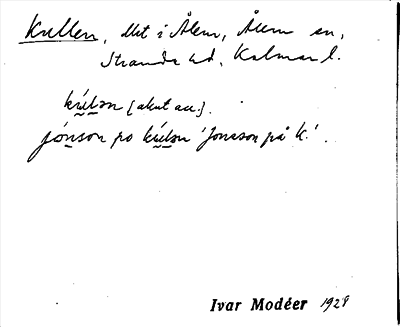 Kullen, Mt i Ålem, Ålem sn,
Stranda hd, Kalmar l.
kúlən [akut acc.].
jónson po kúlən 'Jonsson på K.'.
Ivar Modéer 1928